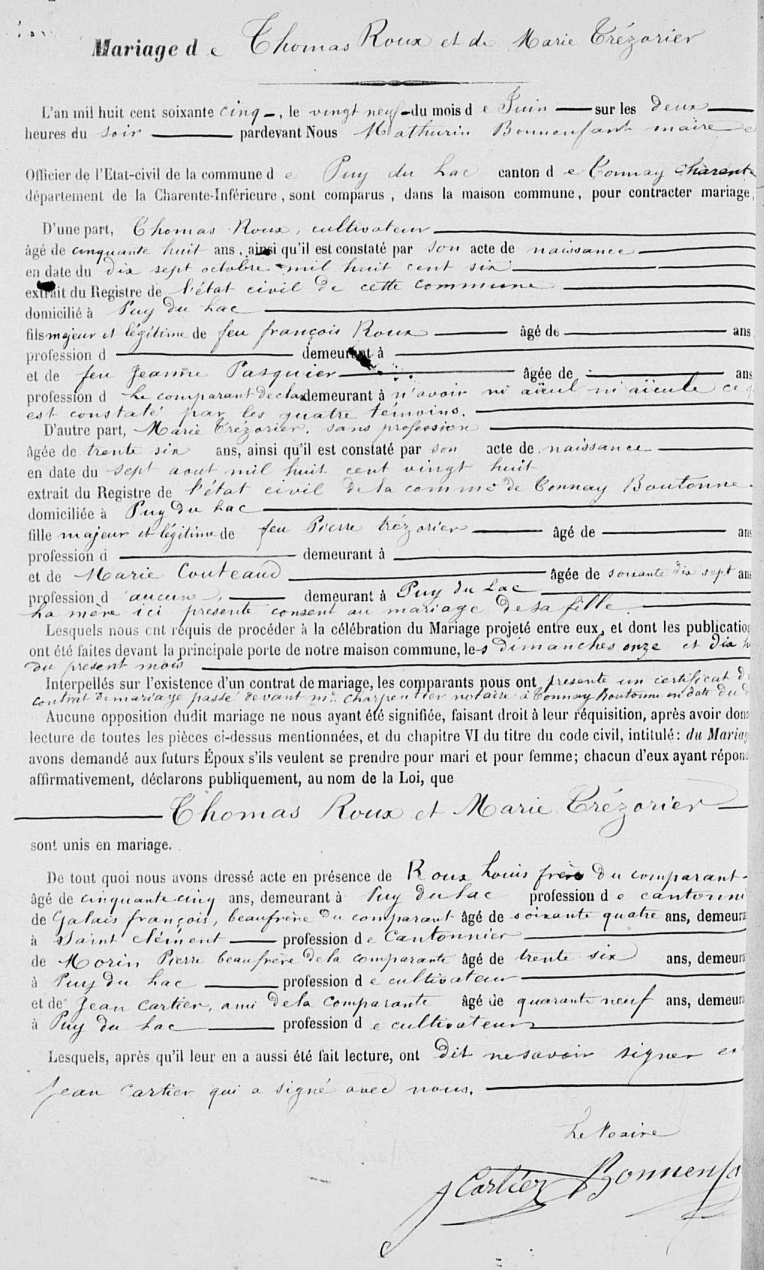 Mariage de Thomas Roux et de Marie Trézorier
L'an mil huit cent soixante cinq, le vingt neuf du mois de Juin sur les deux
heures du soir pardevant Nous Mathurin Bonnenfant maire
Officier de l'Etat-civil de la commune de Puy du Lac canton de Tonnay Charent
département de la Charente-Inférieure, sont comparus, dans la maison commune, pour contracter mariage,
D'une part, Thomas Roux, cultivateur
âgé de cinquante huit ans, ainsi qu'il est constaté par son acte de naissance
en date du dix sept octobre mil huit cent six
extrait du Registre de l'état civil de cette commune
domicilié à Puy du Lac
fils majeur et légitime de feu françois Roux âgé de ans
profession d demeurant à
et de feu Jeanne Pasquier âgée de ans
profession d Le comparant declare demeurant à n'avoir ni aïeul ni aïeule ce q
est constaté par les quatre témoins.
D'autre part, Marie Trézorier, sans profession
âgée de trente six ans, ainsi qu'il est constaté par son acte de naissance
en date du sept aout mil huit cent vingt huit
extrait du Registre de l'état civil de la comme de Tonnay Boutonne
domiciliée à Puy du Lac
fille majeur et légitime de feu Pierre trézorier âgé de ans
profession d demeurant à
et de Marie Couteaud âgée de soixante dix sept ans
profession d aucune, demeurant à Puy du Lac
La mère ici présente consent au mariage de sa fille
Lesquels nous ont requis de procéder à la célébration du Mariage projeté entre eux, et dont les publication
ont été faites devant la principale porte de notre maison commune, les dimanches onze et dix h
du present mois
Interpellés sur l'existence d'un contrat de mariage, les comparants nous ont présenté un certificat d
contrat de mariage passé devant me Charpentier notaire à Tonnay Boutonne en date du d
Aucune opposition dudit mariage ne nous ayant été signifiée, faisant droit à leur réquisition, après avoir don
lecture de toutes les pièces ci-dessus mentionnées, et du chapitre VI du titre du code civil, intitulé : du Mariag
avons demandé aux futurs Époux s'ils veulent se prendre pour mari et pour femme; chacun d'eux ayant répon
affirmativement, déclarons publiquement, au nom de la Loi, que
Thomas Roux et Marie Trézorier
sont unis en mariage.
De tout quoi nous avons dressé acte en présence de Roux Louis frère du comparant
âgé de cinquante cinq ans, demeurant à Puy du Lac profession de cantonni
de Galais françois, beaufrère du comparant âgé de soixante quatre ans, demeura
à Saint Clément profession de Cantonnier
de Morin Pierre beaufrère de la comparante âgé de trente six ans, demeura
à Puy du Lac profession de cultivateur
et de Jean Cartier, ami de la Comparante âgé de quarante neuf ans, demeura
à Puy du Lac profession de cultivateur
Lesquels, après qu'il leur en a aussi été fait lecture, ont dit ne savoir signer
Jean Cartier qui a signé avec nous.
Le Maire
J Cartier Bonnenfa